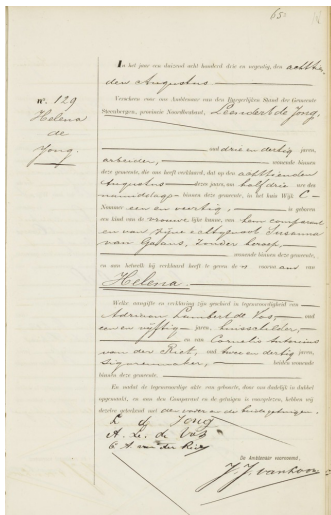 65
In het jaar een duizend acht honderd drie en negentig, den achttien
den Augustus
verscheen voor ons Ambtenaar van den Burgerlijken Stand der Gemeente
Steenbergen, provincie Noordbrabant, Leendert de Jong,
No. 129
Helena
de
Jong.
oud drie en dertig jaren,
arbeider, wonende binnen
deze gemeente, die ons heeft verklaard, dat op den achttienden
Augustus dezes jaars, om half drie ure des
namiddags binnen deze gemeente, in het huis Wijk C
Nummer een en veertig, is geboren
een kind van de vrouwelijke kunne, van hem comparant
en van zijne echtgenoot Susanna
van Gaans, zonder beroep,
wonende binnen deze gemeente,
en aan hetwelk hij verklaard heeft te geven de voornaam van
Helena.
Welke aangifte en verklaring zijn geschied in tegenwoordigheid van
Adriaan Lambert de Vos, oud
een en vijftig jaren, huisschilder,
en van Cornelis Antonius
van der Riet, oud twee en dertig jaren,
sigarenmaker, beiden wonende
binnen deze gemeente.
En omdat de tegenwoordige akte van geboorte, door ons dadelijk in dubbel
opgemaakt, en aan den Comparant en de getuigen is voorgelezen, hebben wij
dezelve geteekend met den vader en de beide getuigen.
L de Jong
A. L. de Vos
C A van der Riet
De Ambtenaar voornoemd,
J. J. van Loon